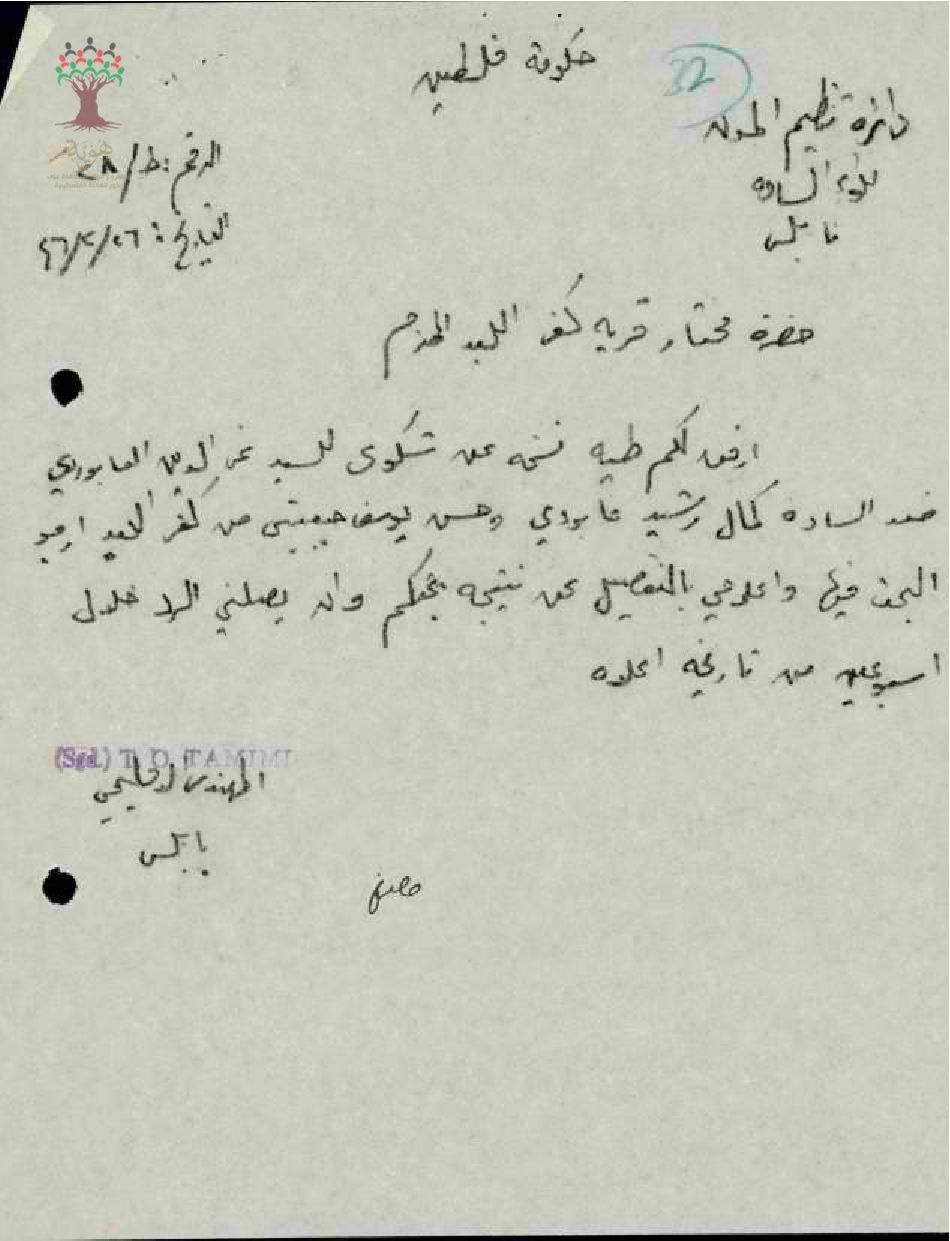 حكومة فلسطين
32
دائرة تنظيم المدن
لواء السامرة
نابلس
الرقم: ط/٢٨
التاريخ: ٤٦/٤/٢٦
هوية
حضرة مختار قرية كفر اللبد المحترم
ارفق لكم طيه نسخه عن شكوى للسيد الدين العابوري
ضد الساده كمال رشيد عابودي وحسن يوسف من كفر اللبد ارجو
البحث فيها واعلامي بالتفصيل عن نتيجه بحثكم وان يصلني الرد خلال
اسبوعين من تاريخه اعلاه
(Sgd.) T. O. TAMIMI
المهندس الاقليمي
نابلس